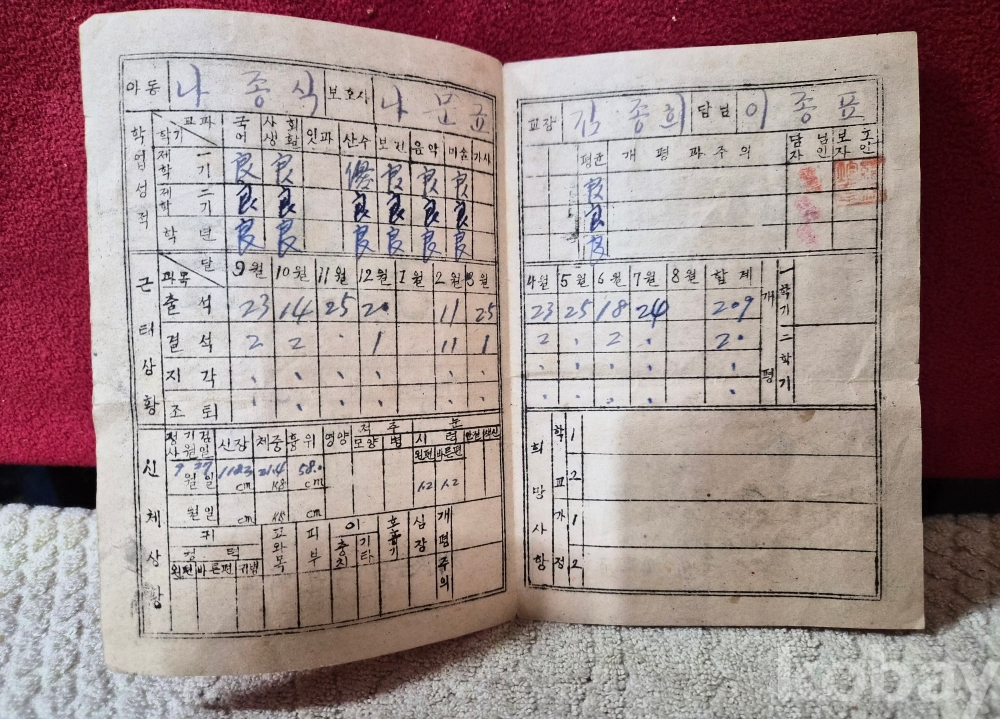 아동 나종식 보호자 나문균
학업성적
교과 학기 국어 사회생활 잇과 산수 보건 음악 미술 가사
제一학기 良 良 優 良 良 良
제二학기 良 良 良 良 良 良
학년 良 良 良 良 良 良
근태상황
달 과목 9월 10월 11월 12월 1월 2월 3월
출석 23 14 25 20 11 25
결석 2 2 . 1 11 1
지각
조퇴
신체상황
정기검사 원일 신장 체중 흉위 영양 척주 모양 병 눈 시력 왼편 바른편
9월 27일 cm 21.4 kg 58.0 cm 1.2 1.2
월 일 cm kg cm
귀 청력 왼편 바른편 귀병 피부 이 충치 기타 심장 개평주의
교장 김종희 담님 이종표
평균 개평과주의 담님자인 보호자인
良
良
良
4월 5월 6월 7월 8월 합계
23 25 18 24 209
2 . 2 . 20
개평 一학기 二학기
희망사항
학교 1
2
가정 1
2
kobay